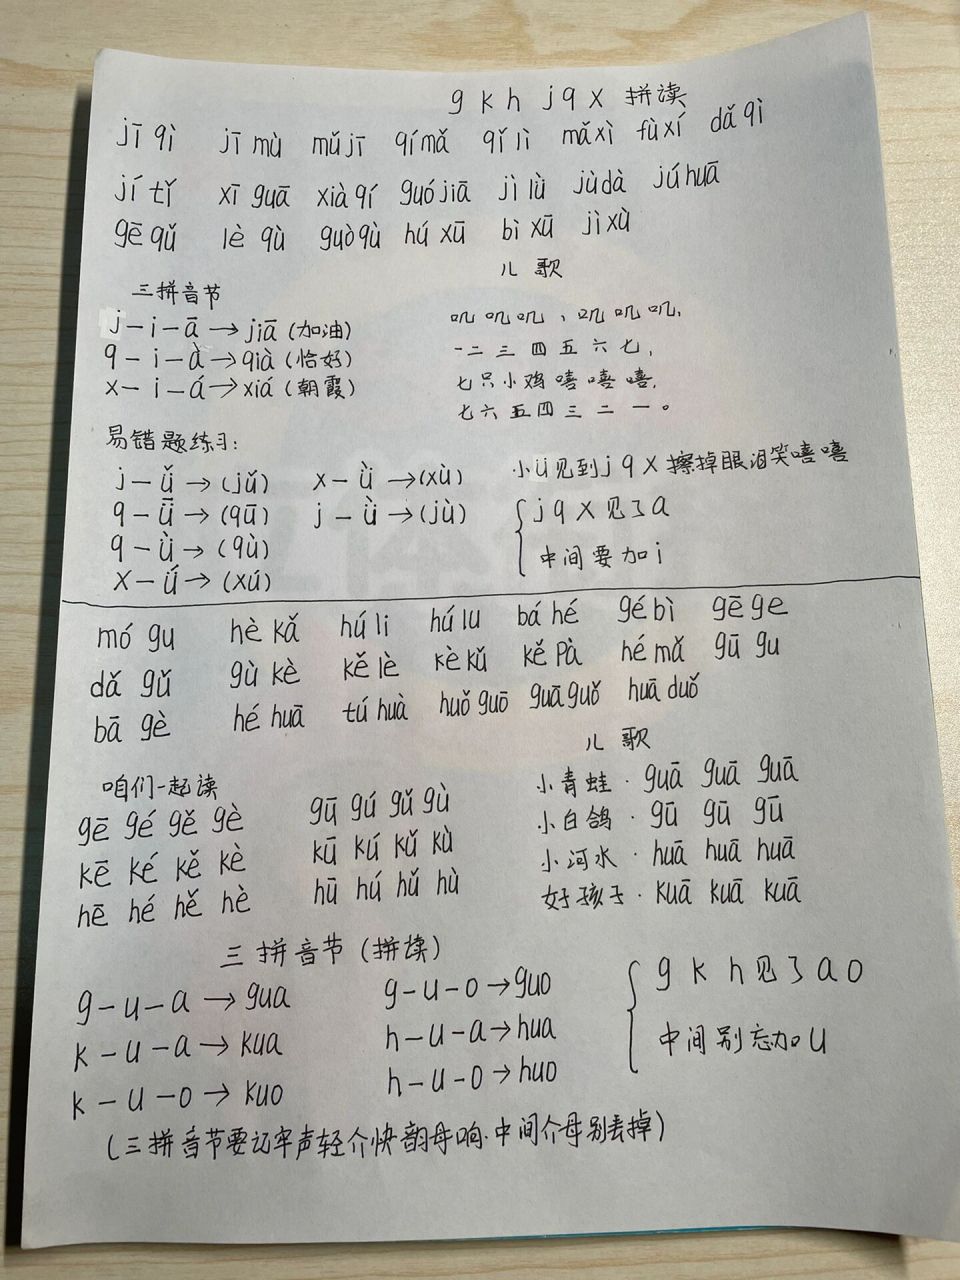 g k h j q x 拼读
jī qì jī mù mǔ jī qí mǎ qǐ lì mǎ xì fù xí dǎ qì
jí tǐ xī guā xià qí guó jiā jì lǜ jù dà jú huā
gē qǔ lè qù guò qù hú xū bì xū jì xù
三拼音节
j-i-ā→jiā (加油)
q-i-à→qià (恰好)
x-i-á→xiá (朝霞)
儿歌
叽叽叽,叽叽叽,
一二三四五六七,
七只小鸡嘻嘻嘻,
七六五四三二一。
易错题练习:
j-ǚ→(jǔ) x-ǜ→(xù)
q-ǖ→(qū) j-ǜ→(jù)
q-ǜ→(qù)
x-ǘ→(xú)
小ü见到j q x擦掉眼泪笑嘻嘻
j q x见了a
中间要加i
mó gu hè kǎ hú li hú lu bá hé gé bì gē ge
dǎ gǔ gù kè kě lè kè kǔ kě pà hé mǎ gū gu
bā gè hé huā tú huà huǒ guō guā guǒ huā duǒ
咱们一起读
gē gé gě gè gū gú gǔ gù
kē ké kě kè kū kú kǔ kù
hē hé hě hè hū hú hǔ hù
儿歌
小青蛙·guā guā guā
小白鸽·gū gū gū
小河水·huā huā huā
好孩子·kuā kuā kuā
三拼音节(拼读)
g-u-a→gua g-u-o→guo
k-u-a→kua h-u-a→hua
k-u-o→kuo h-u-o→huo
g k h见了a o
中间别忘加u
(三拼音节要记牢声轻介快韵母响·中间介母别丢掉)